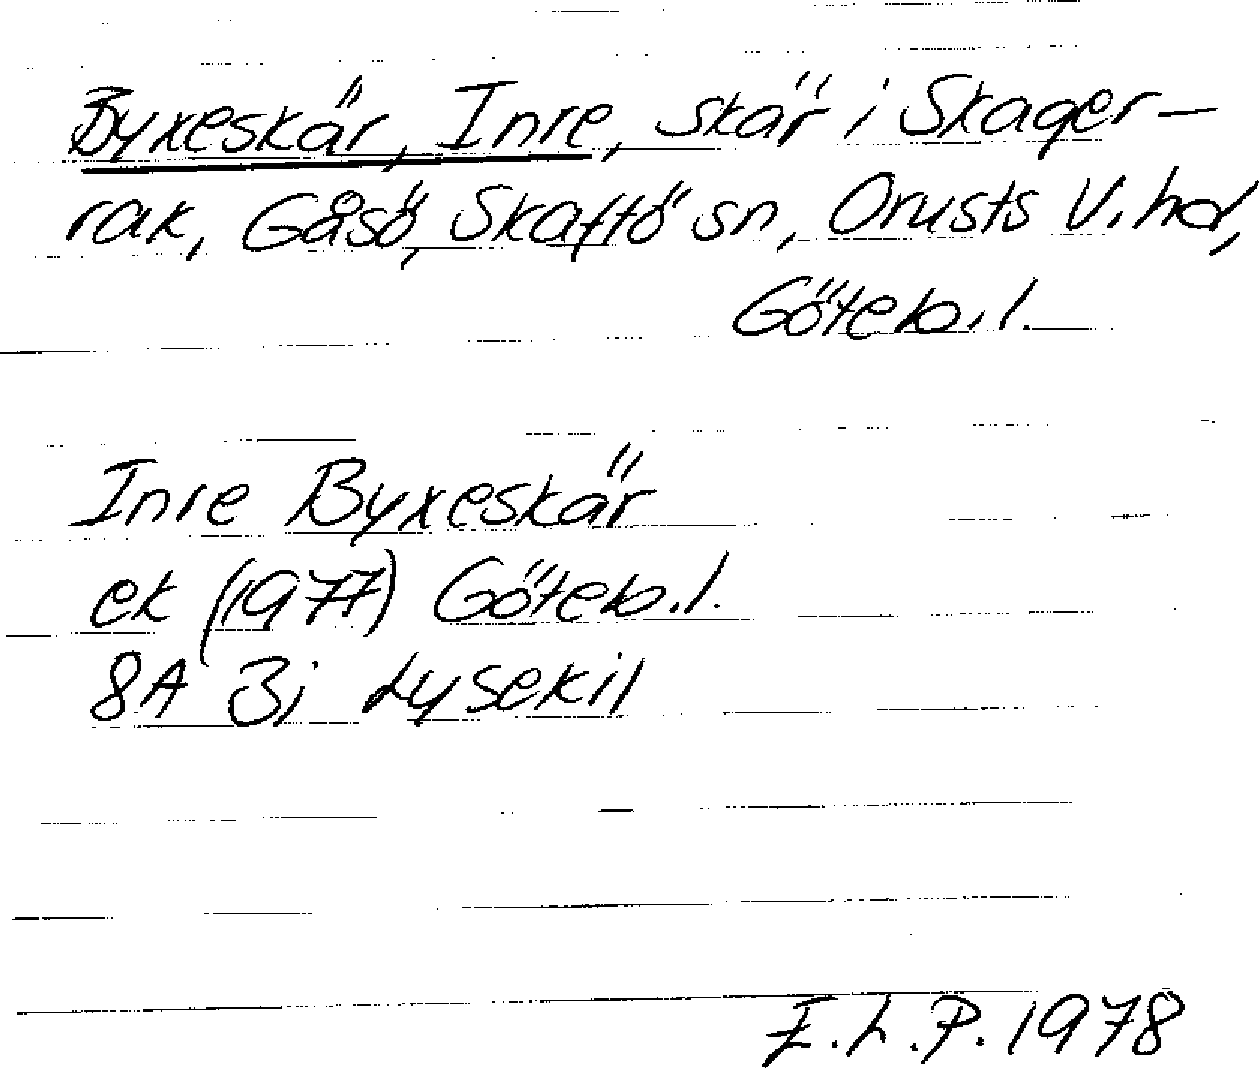 Byxeskär, Inre, skär i Skager-
rak, Gåsö, Skaftö sn, Orusts V. hd,
Göteb. l.
Inre Byxeskär
ek (1977) Göteb. l.
8A 3j Lysekil
E.L.P. 1978